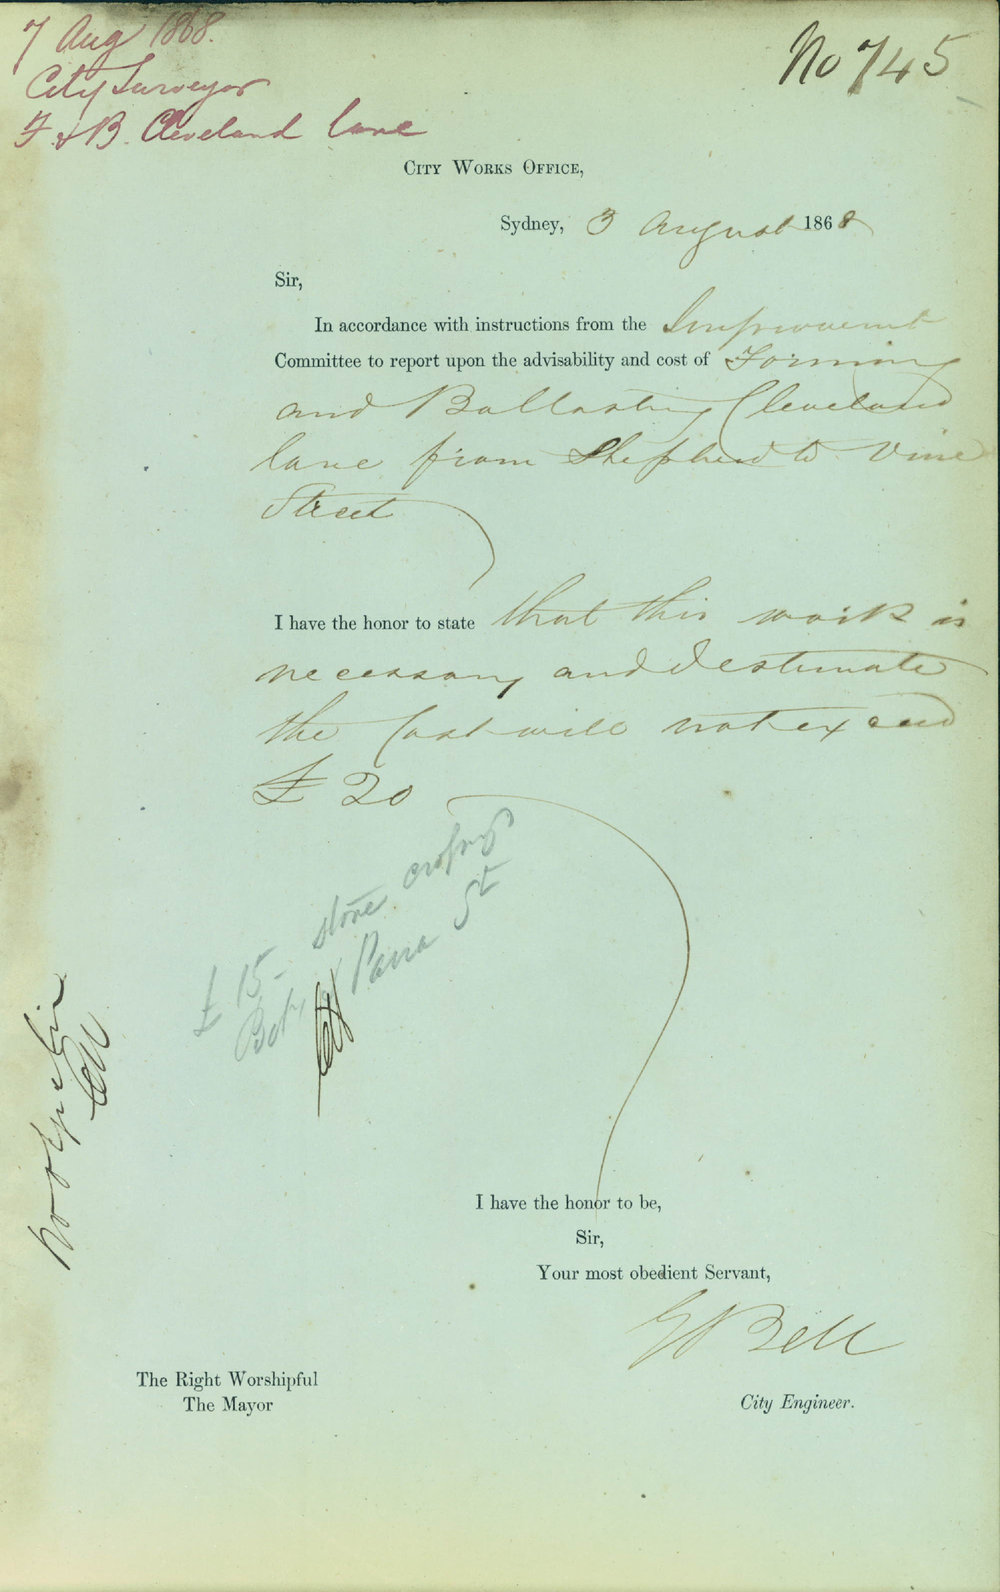 7 Aug 1868.
City Surveyor
F & B. Cleveland lane
No 745
CITY WORKS OFFICE,
Sydney, 3 August 1868
Sir,
In accordance with instructions from the Improvement
Committee to report upon the advisability and cost of Forming
and Ballasting Cleveland
lane from Shepherd to Vine
Street
I have the honor to state that this work is
necessary and I estimate
the Cost will not exceed
£ 20
£ 15 - stone crofsings
Bot. of Parra St
I have the honor to be,
Sir,
Your most obedient Servant,
Bell
The Right Worshipful
The Mayor
City Engineer.